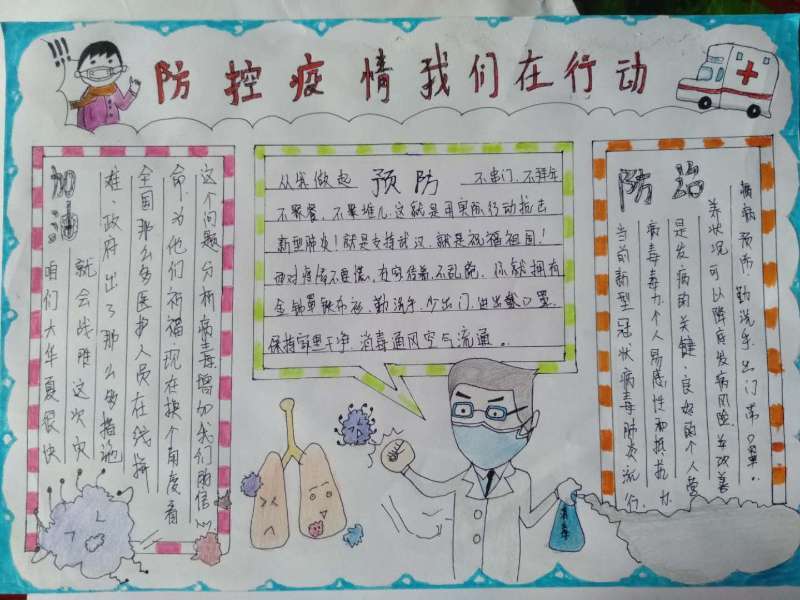 !!!
防控疫情我们在行动
加油
咱们大华夏很快
就会战胜这次灾
难.政府出了那么多措施
全国那么多医护人员在线拼
命.为他们祈福.现在换个角度看
这个问题分析病毒增加我们的信心
从我做起 预防 不串门,不拜年
不聚餐,不聚堆儿.这就是用实际行动抗击
新型肺炎!就是支持武汉.就是祝福祖国!
面对疫情不要慌,在家待着不乱跑。你就拥有
金钟罩铁布衫,勤洗手,少出门,进出戴口罩
保持家里干净.消毒通风空气流通。
防治
当前新型冠状病毒肺炎流行
病毒毒力个人易感性和抵抗力
是发病的关键.良好的个人营
养状况可以降低发病风险.并改善
病预防,勤洗手出门带口罩。
消毒